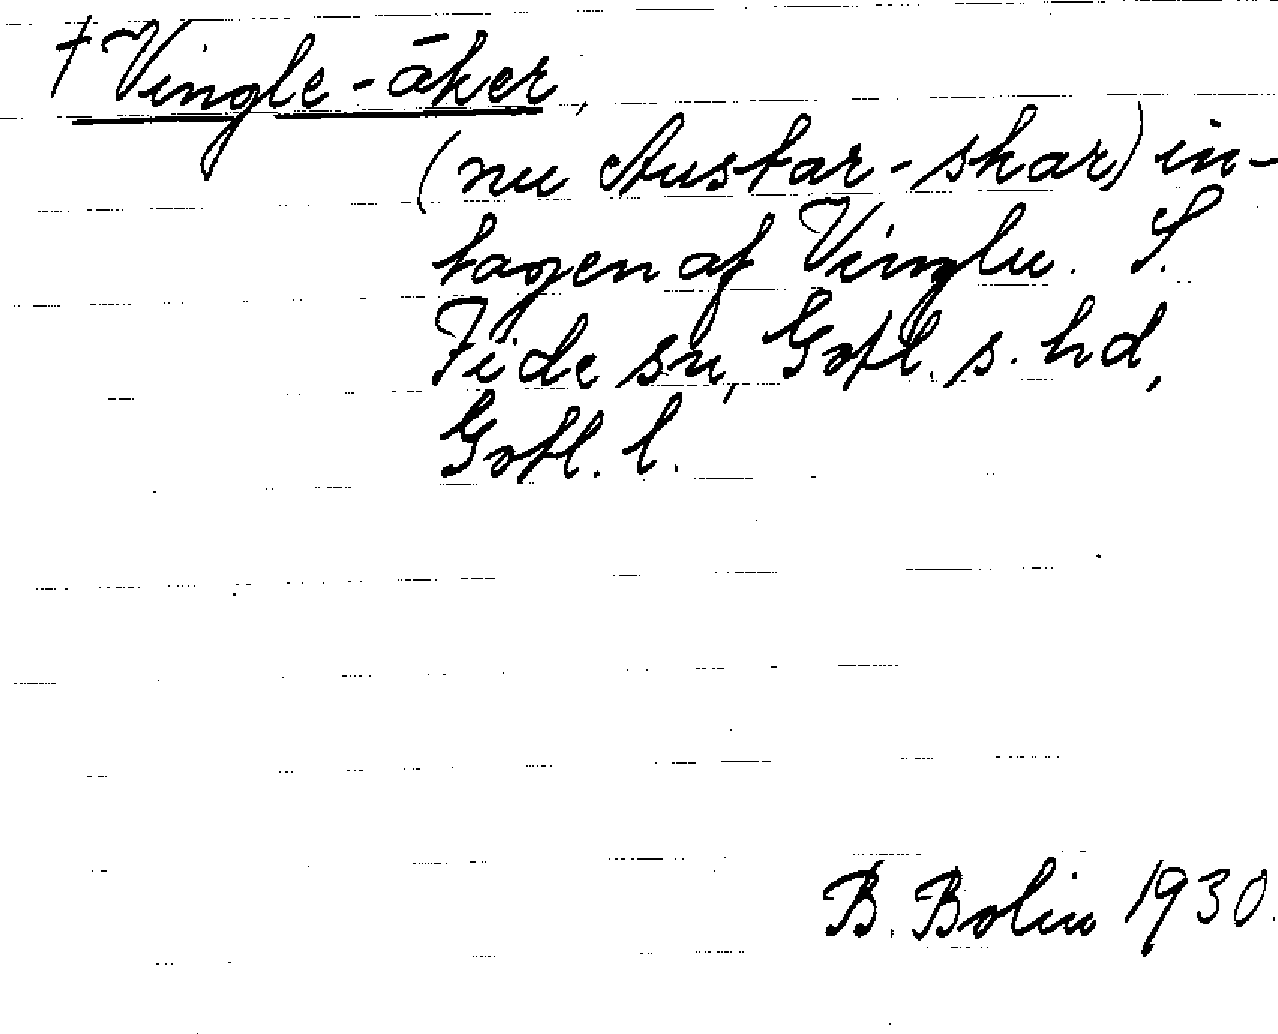 † Vingle-āker,
(nu Austar-skar) in-
tagen af Vinglu. S.
Fide sn, Gotl. s. hd,
Gotl. l.
B. Bolin 1930.